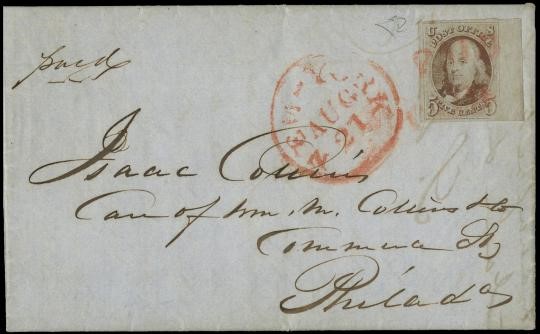 paid
U S
POST OFFICE
5 FIVE CENTS 5
NEW-YORK
AUG
27
Isaac Collins
Care of Wm. M. Collins & Co
Commerce St
Philada